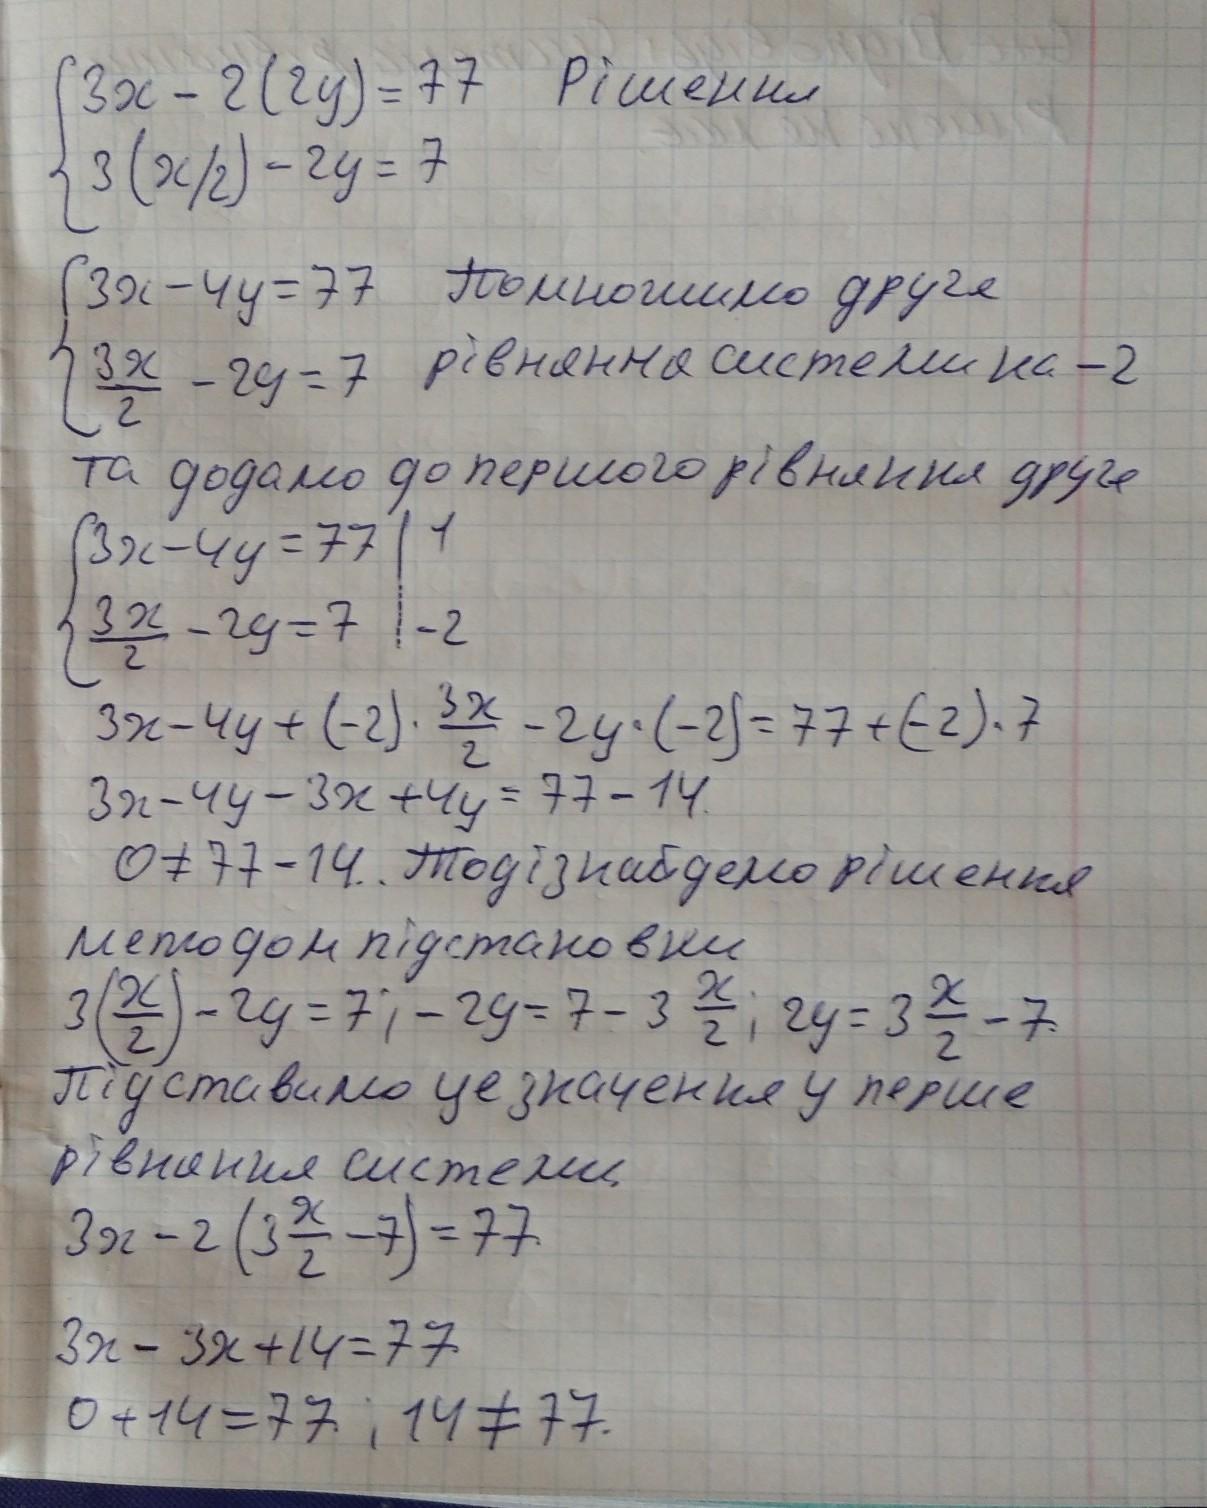 3x - 2(2y) = 77 Рішення
3(x/2) - 2y = 7
3x - 4y = 77 Помножимо друге
3x/2 - 2y = 7 рівняння системи на -2
та додамо до першого рівняння друге
3x - 4y = 77 | 1
3x/2 - 2y = 7 | -2
3x - 4y + (-2) · 3x/2 - 2y · (-2) = 77 + (-2) · 7
3x - 4y - 3x + 4y = 77 - 14.
0 ≠ 77 - 14.. Тоді знайдемо рішення
методом підстановки
3(x/2) - 2y = 7; - 2y = 7 - 3 x/2; 2y = 3 x/2 - 7.
Підставимо це значення у перше
рівняння системи.
3x - 2(3 x/2 - 7) = 77.
3x - 3x + 14 = 77.
0 + 14 = 77.; 14 ≠ 77.